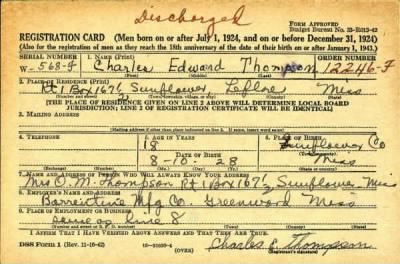 Discharged
REGISTRATION CARD (Men born on or after July 1, 1924, and on or before December 31, 1924)
FORM APPROVED
Budget Bureau No.
(Also for the registration of men as they reach the 18th anniversary of the date of their birth on or after January 1, 1943.)
SERIAL NUMBER 1. NAME (Print) ORDER NUMBER
W 568-F Charles Edward Thompson 12246-F
(First) (Middle) (Last)
2. PLACE OF RESIDENCE (Print)
Rt 1 Box 167½ Sunflower, Leflore Miss
(Number and street) (Town, township, village, or city) (County) (State)
[THE PLACE OF RESIDENCE GIVEN ON LINE 2 ABOVE WILL DETERMINE LOCAL BOARD
JURISDICTION; LINE 2 OF REGISTRATION CERTIFICATE WILL BE IDENTICAL]
3. MAILING ADDRESS
[Mailing address if other than place indicated on line 2. If same, insert word same]
4. TELEPHONE 5. AGE IN YEARS 6. PLACE OF BIRTH
18 Sunflower Co
DATE OF BIRTH (Town or county)
8-10-28 Miss
(Exchange) (Number) (Mo.) (Day) (Yr.) (State or country)
7. NAME AND ADDRESS OF PERSON WHO WILL ALWAYS KNOW YOUR ADDRESS
Mrs O. M. Thompson Rt 1 Box 167½ Sunflower Miss
8. EMPLOYER'S NAME AND ADDRESS
Barrentine Mfg Co. Greenwood Miss
9. PLACE OF EMPLOYMENT OR BUSINESS
Same as line 8
(Number and street or R. F. D. number) (Town) (County) (State)
I AFFIRM THAT I HAVE VERIFIED ABOVE ANSWERS AND THAT THEY ARE TRUE.
DSS Form 1 (Rev. 11-16-42) (OVER) Charles E. Thompson